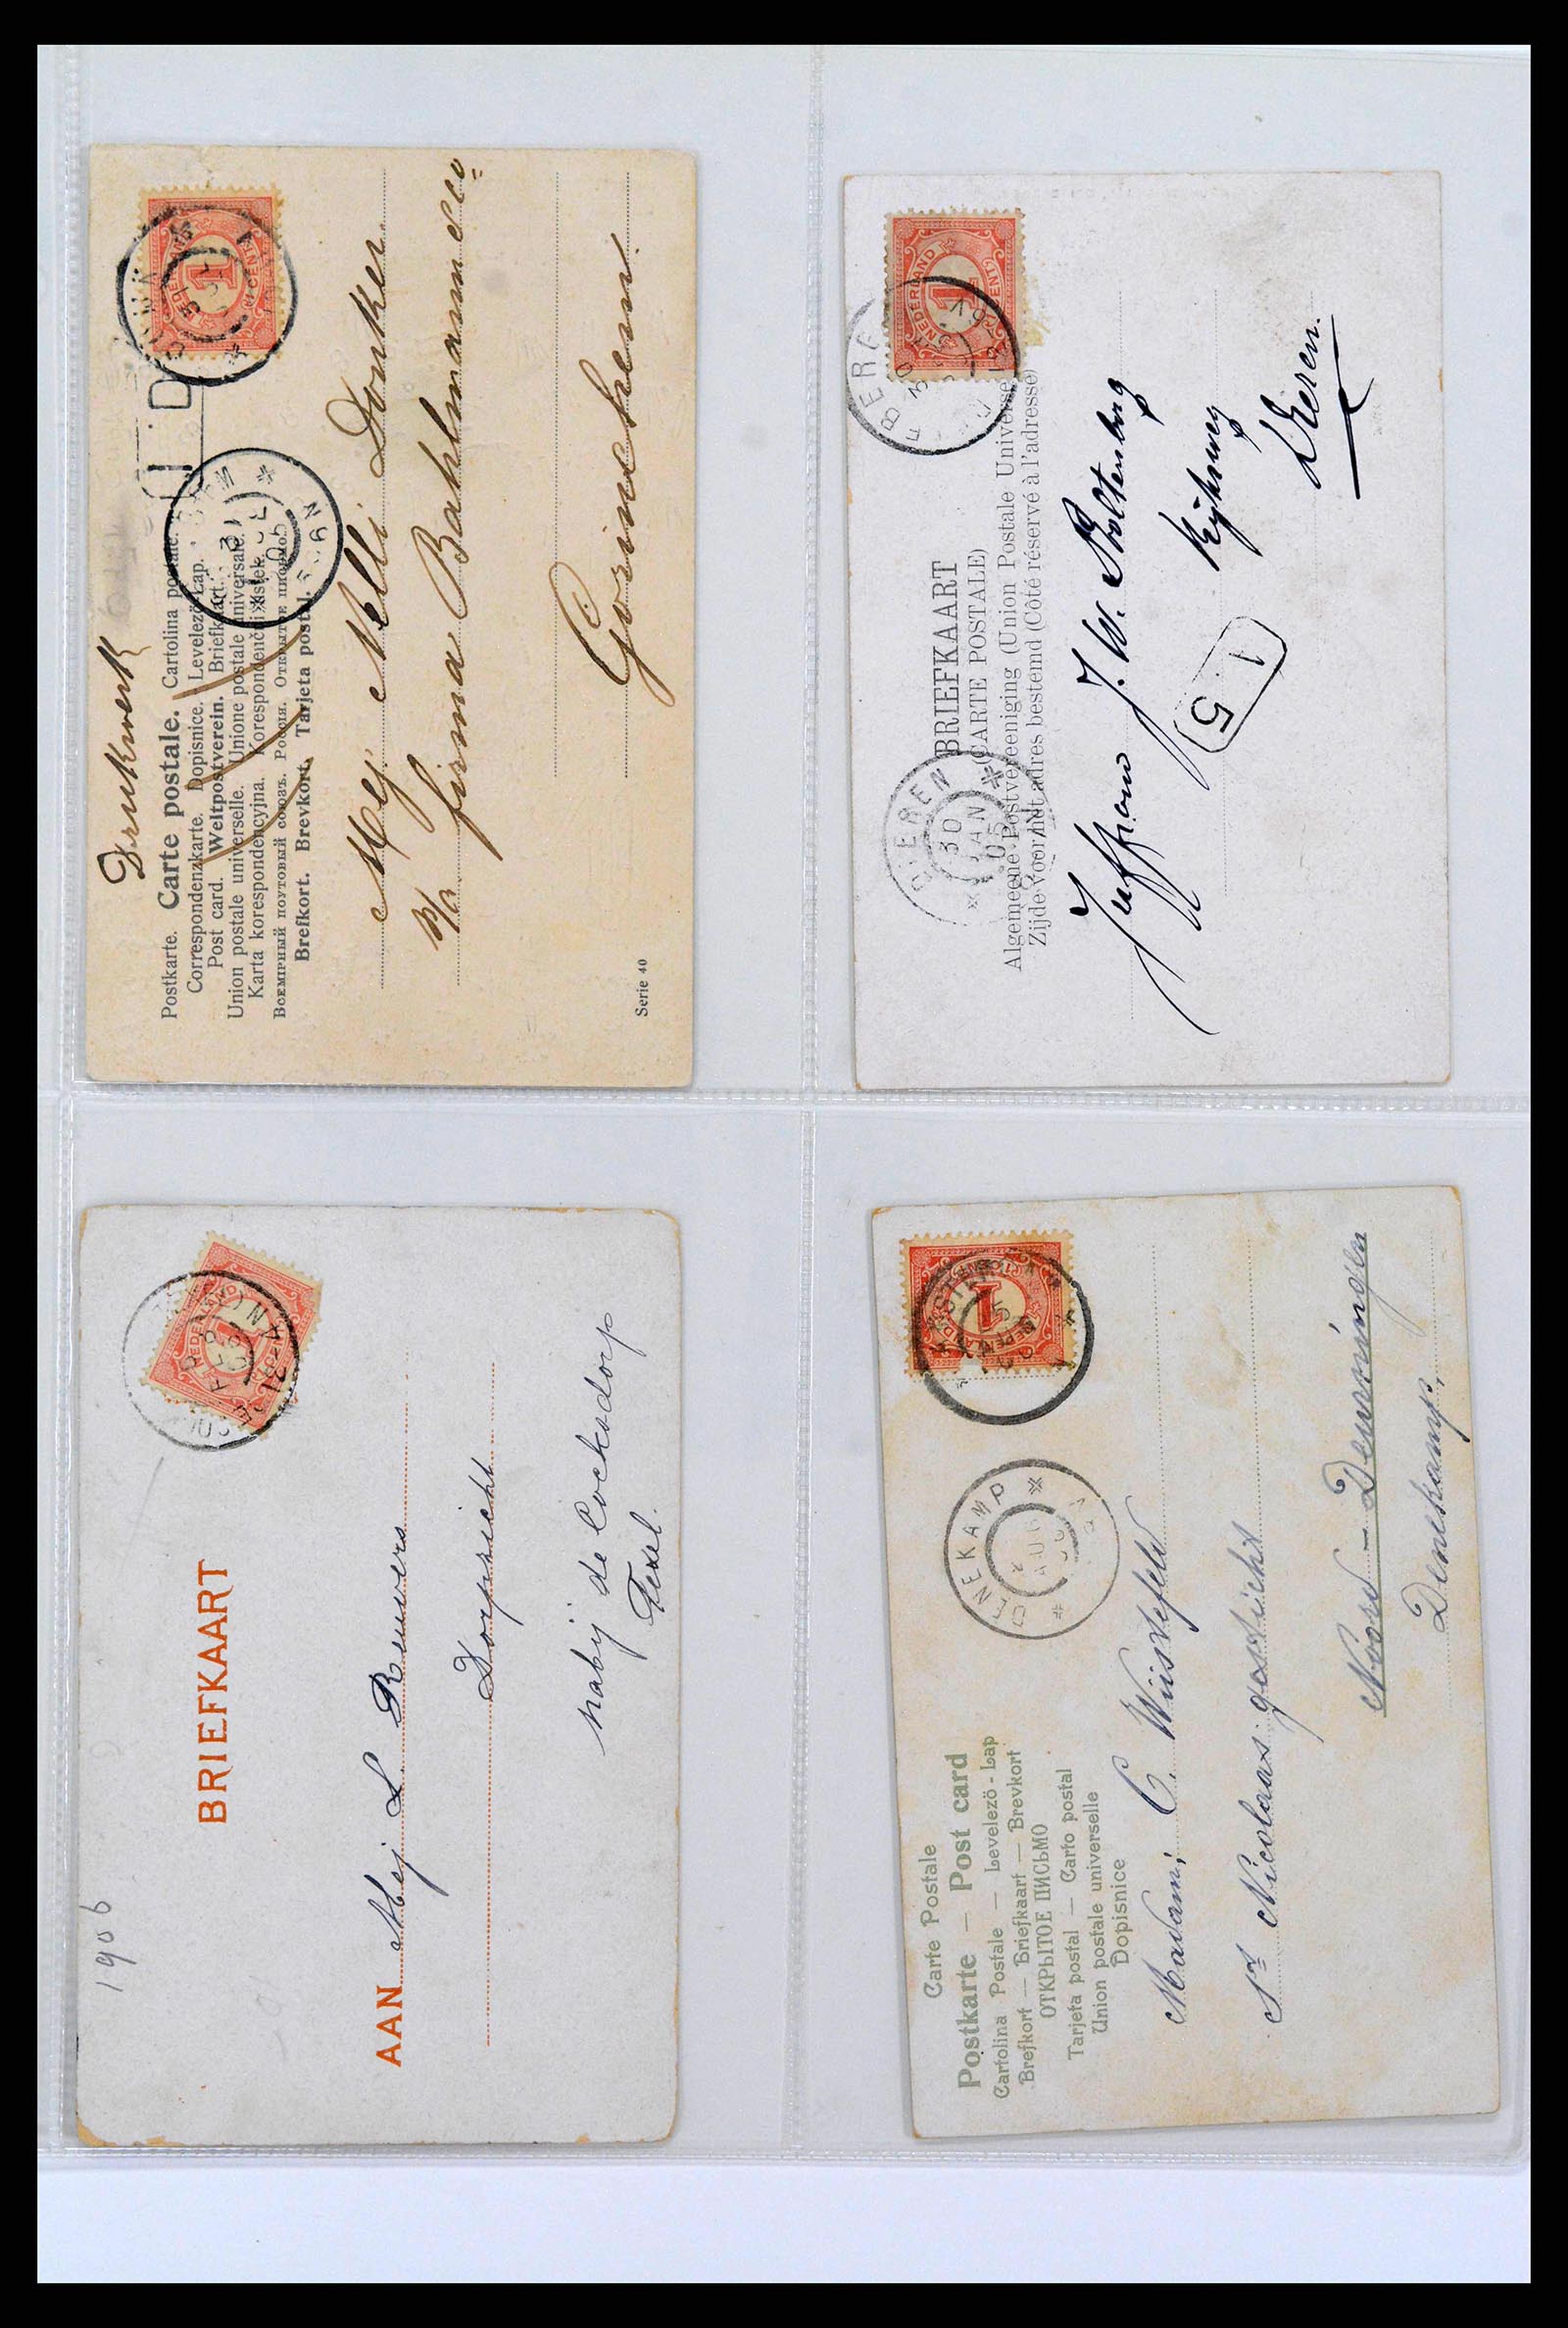 Drukwerk
Postkarte. Carte postale. Cartolina postale.
Correspondenzkarte. Dopisnice. Levelező-Lap.
Post card. Weltpostverein. Briefkaart.
Union postale universelle. Unione postale universale.
Karta korespondencyjna. Korespondenčni listek.
Всемірный почтовый союзъ. Россія. Открытое письмо.
Brefkort. Brevkort. Tarjeta postal.
Mej Nelli Donker
p/a firma Bahlmann & Co
Gorinchem.
Serie 40
NEDERLAND
1
CENT
BRIEFKAART
(CARTE POSTALE)
Algemeene Postvereeniging (Union Postale Universelle
Zijde voor het adres bestemd (Côté réservé à l'adresse)
DIEREN
30
JAN
05
Juffrouw J. W. Stoltenberg
Rijksweg
Dieren.
1
5
1906
NEDERLAND
BRIEFKAART
AAN Mej L. Reuvers
Dorpzicht
nabij de Cocksdorp
Texel.
Carte Postale
Postkarte — Post card
Cartolina Postale — Levelező-Lap
Brefkort — Briefkaart — Brevkort
ОТКРЫТОЕ ПИСЬМО
Tarjeta postal — Carto postal
Union postale universelle
Dopisnice
DENEKAMP
AUG
Madam, C. Wüstefeld
St Nicolaas-gesticht
Noord-Deurningen
Denekamp.